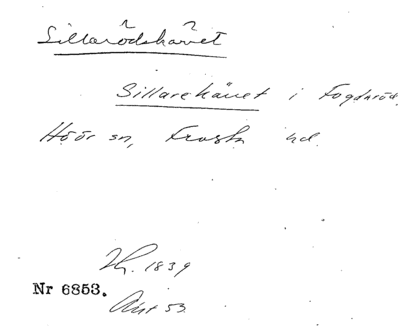 Sillarödshävet
Sillarehävet i Fogdaröd.
Höör sn, Frosta hd.
1839
Nr 6853.
53.